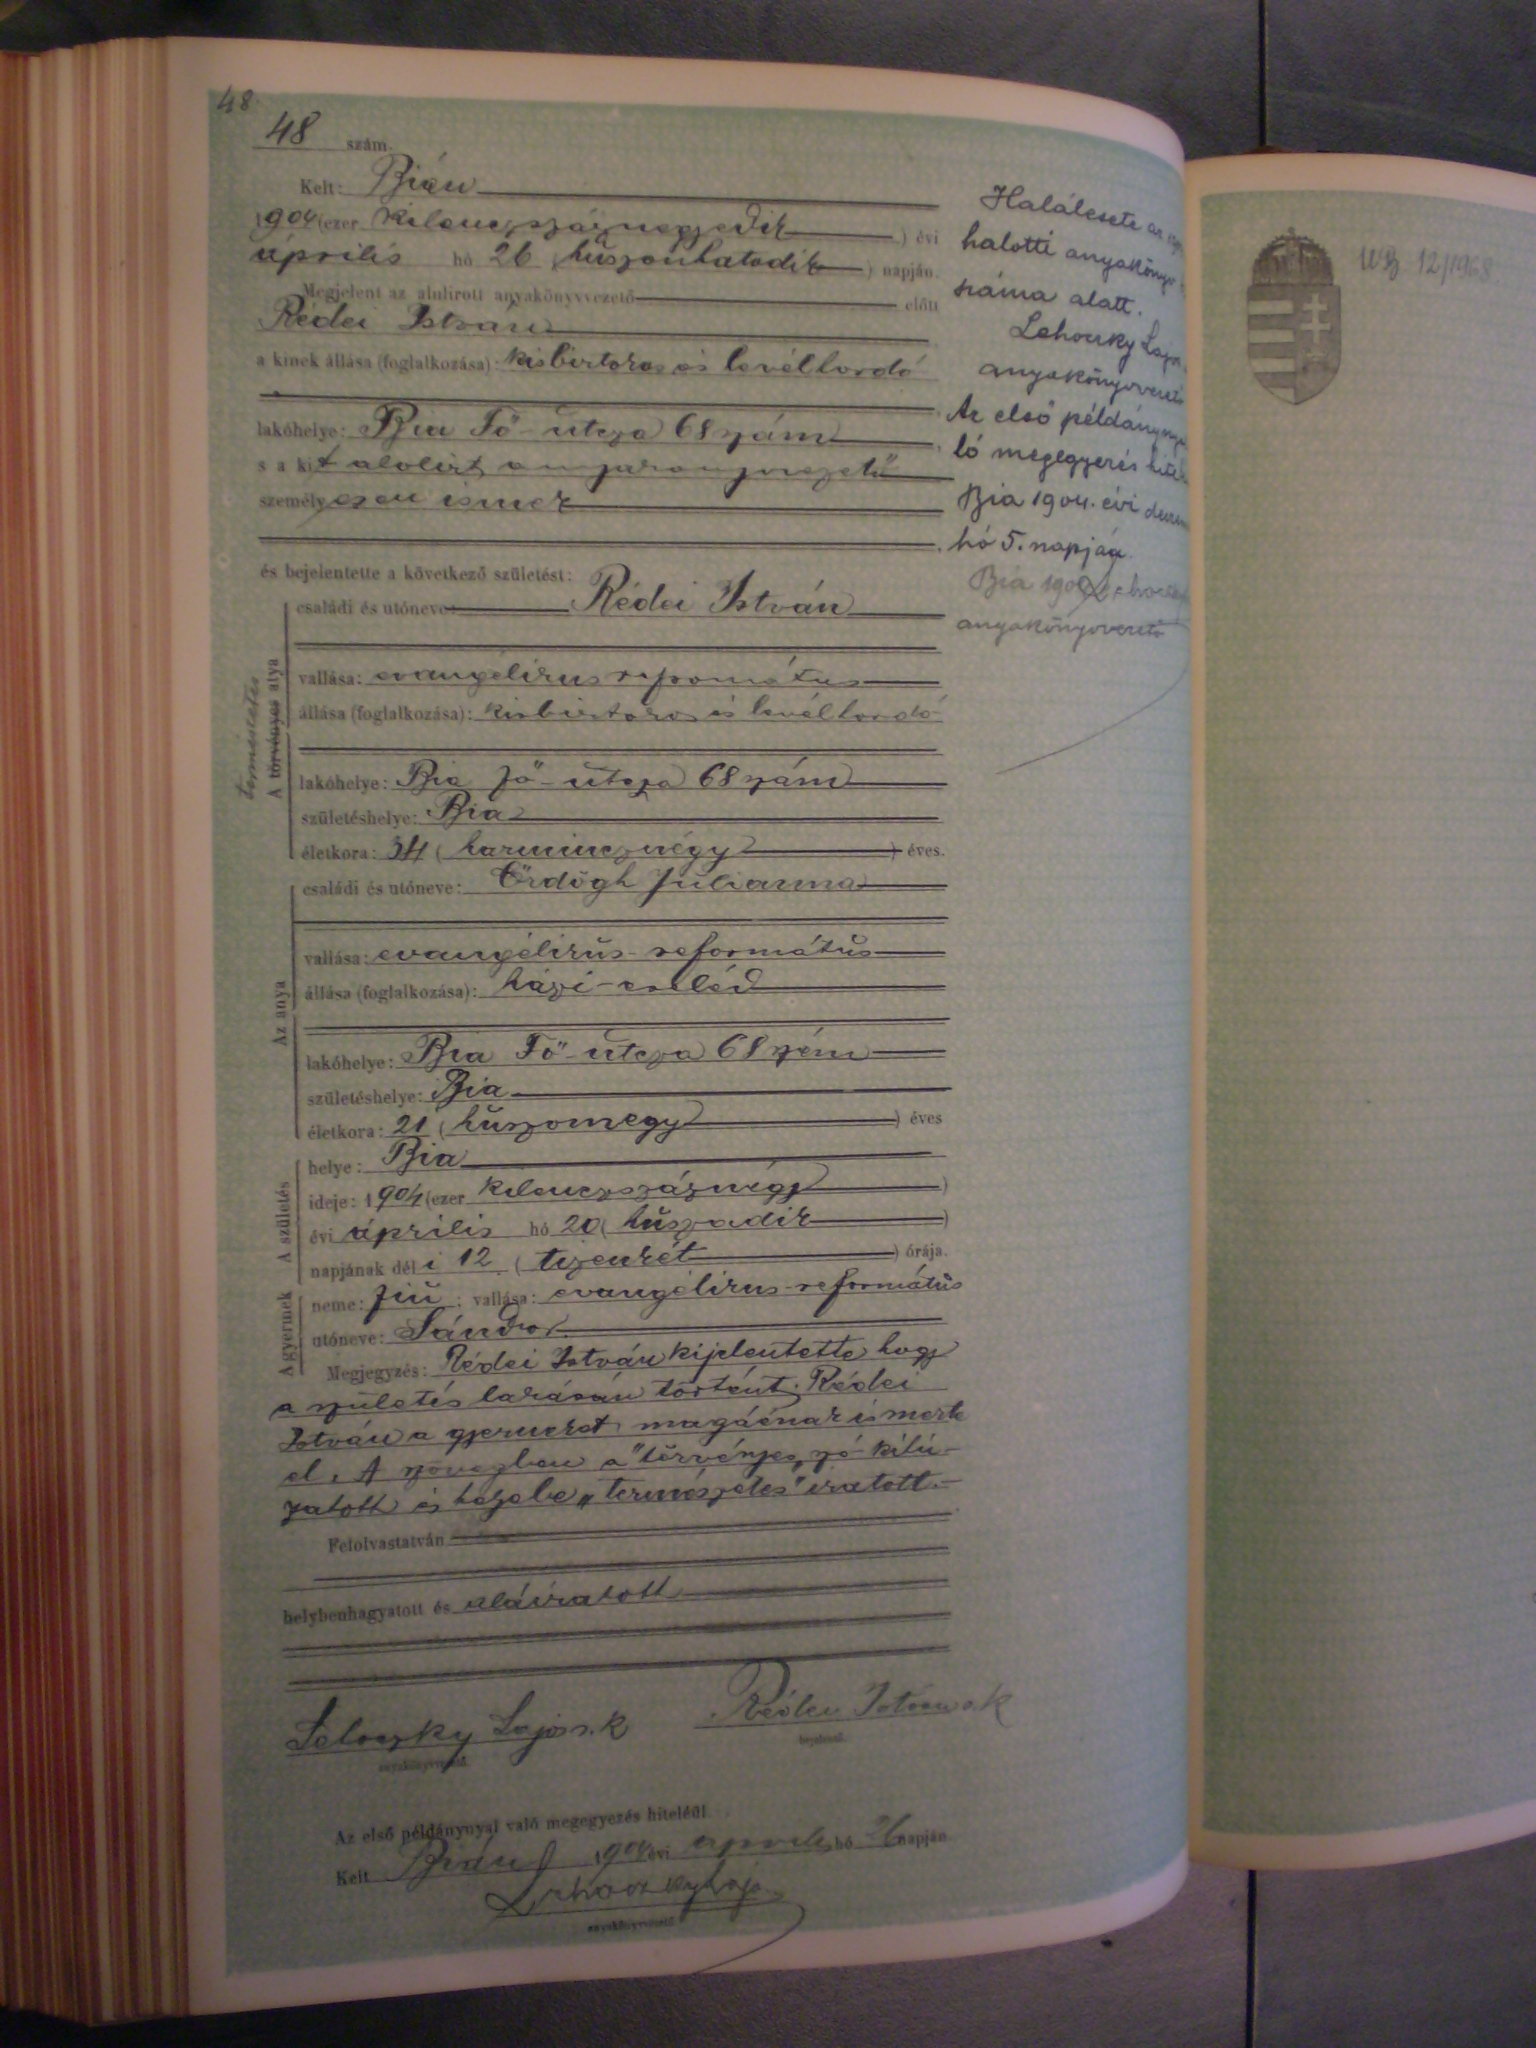 48
48 szám.
Kelt: Bián
1904 (ezer kilenczszáznegyedik ) évi
április hó 26 (huszonhatodik ) napján.
Megjelent az alulirott anyakönyvvezető előtt
Rédei István
a kinek állása (foglalkozása): kisbirtokos és levélhordó
lakóhelye: Bia Fő-utcza 68 szám
s a kit alolirt anyakönyvvezető
személyesen ismer
és bejelentette a következő születést:
A törvényes atya
természetes
családi és utóneve: Rédei István
vallása: evangélikus református
állása (foglalkozása): kisbirtokos és levélhordó
lakóhelye: Bia Fő-utcza 68 szám
születéshelye: Bia
életkora: 34 (harmincznégy ) éves.
Az anya
családi és utóneve: Ördögh Julianna
vallása: evangélikus-református
állása (foglalkozása): házi-cseléd
lakóhelye: Bia Fő-utcza 68 szám
születéshelye: Bia
életkora: 21 (huszonegy ) éves
A születés
helye: Bia
ideje: 1904 (ezer kilenczszáznégy )
évi április hó 20 (huszadik )
napjának déli 12 (tizenkét ) órája.
A gyermek
neme: fiú; vallása: evangélikus-református
utóneve: Sándor
Megjegyzés: Rédei István kijelentette hogy
a születés lakásán történt. Rédei
István a gyermeket magáénak ismerte
el. A szövegben a "törvényes" szó kihú-
zatott és helyébe „természetes" iratott.-
Felolvastatván
helybenhagyatott és aláiratott
Lehoczky Lajos s.k Rédei István s.k
anyakönyvvezető bejelentő.
Az első példánynyal való megegyezés hiteléül
Kelt Bián 1904 évi április hó 26 napján
Lehoczky Lajos
anyakönyvvezető
Halálesete az
halotti anyakönyv
száma alatt.
Lehoczky Lajos
anyakönyvvezető
Az első példánynyal va
ló megegyezés hitel
Bia 1904. évi decem
hó 5. napján.
Bia 190 Lehoczky
anyakönyvvezető
12/1968